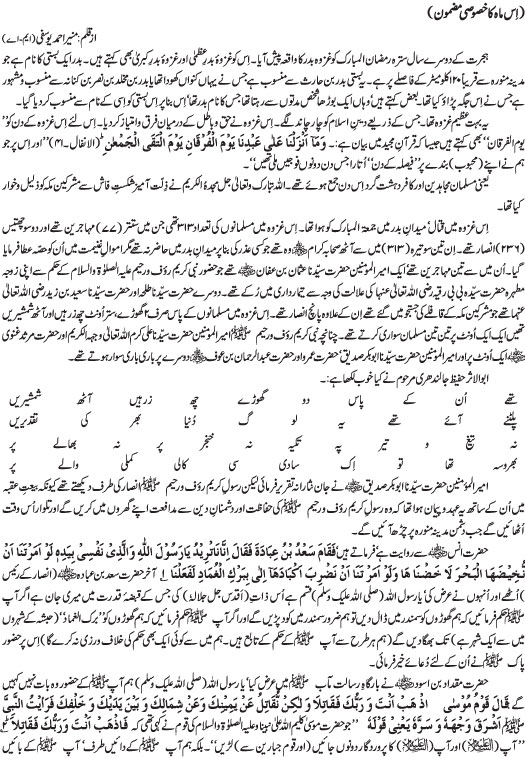 (اِس ماہ کا خصوصی مضمون)
از قلم: منیر احمد یوسفی (ایم۔اے)
ہجرت کے دوسرے سال سترہ رمضان المبارک کو غزوہ بدر کا واقعہ پیش آیا۔ اِس کو غزوہ بدرِ عظمٰی اور غزوہ بدرِ کبریٰ بھی کہتے ہیں۔ بدر ایک بستی کا نام ہے جو
مدینہ منورہ سے قریباً ۱۲۰ کلومیٹر کے فاصلے پر ہے۔ یہ بستی بدر بن حارث سے منسوب ہے جس نے یہاں کنواں کھودا تھا یا بدر بن مخلد بن نصر بن کنانہ سے منسوب و مشہور
ہے جس نے اِس جگہ پڑاؤ کیا تھا۔ بعض کہتے ہیں وہاں ایک بوڑھا شخص مدتوں سے رہتا تھا جس کا نام بدر تھا، اِس بنا پر اِس بستی کو اِسی کے نام سے منسوب کر دیا گیا۔
یہ بہت عظیم غزوہ ہے۔ جس کے ذریعے دینِ اسلام کو چار چاند لگے۔ اِس غزوہ نے حق و باطل کے درمیان فرق و امتیاز کر دیا۔ اِس لئے اِس غزوہ کے دن کو’’
یوم الفرقان‘‘ بھی کہتے ہیں جیسا کہ قرآنِ مجید میں بیان ہے۔ وَمَا اَنْزَلْنَا عَلٰی عَبْدِنَا یَوْمَ الْفُرْقَانِ یَوْمَ الْتَقَی الْجَمْعٰنِ (الانفال۔۴۱)’’اور اِس پر جو
ہم نے اپنے (محبوب) بندے پر ’’فیصلہ کے دن‘‘ اُتارا جس دن دونوں فوجیں ملی تھیں‘‘۔
یعنی مسلمان مجاہدین اور کافر دہشت گرد اِس دن جمع ہوئے تھے۔ اللہ تبارک وتعالیٰ جل مجدہٗ الکریم نے ذلت آمیز شکستِ فاش سے مشرکینِ مکہ کو ذلیل وخوار
کیا۔
اِس غزوہ میں قتال میدانِ بدر میں جمعۃ المبارک کو ہوا تھا۔ اِس غزوہ میں مسلمانوں کی تعداد ۳۱۳ تھی جن میں ستتر (۷۷) مہاجرین تھے اور دو سو چھتیس
(۲۳۶) انصار تھے۔ اِن تین سو تیرہ (۳۱۳) میں سے آٹھ صحابہ کرام ؓ وہ تھے جو کسی عذر کی بنا پر میدانِ بدر میں حاضر نہ تھے مگر اموالِ غنیمت میں اُن کو حصہ عطا فرمایا
گیا۔ اُن میں سے تین مہاجرین تھے‘ ایک امیر المؤمنین حضرت سیّدنا عثمان بن عفان ؓ تھے جو حضور نبی کریم رؤف ورحیم علیہ الصلوٰۃ والسلام کے حکم سے اپنی زوجہ
مطہرہ حضرت سیّدہ بی بی رقیہ رضی اللہ تعالیٰ عنہا کی علالت کی وجہ سے تیمارداری میں رُکے تھے۔ دوسرے حضرت سیّدنا طلحہ اور حضرت سیّدنا سعید بن زید رضی اللہ تعالیٰ
عنہما تھے جو مشرکینِ مکہ کے قافلے کی جستجو میں گئے تھے۔ اُن کے علاوہ پانچ انصار تھے۔ اِس غزوہ میں مسلمانوں کے پاس صرف ۲ گھوڑے ستر اونٹ چھ زرہیں اور آٹھ شمشیریں
تھیں ایک ایک اونٹ پر تین تین مسلمان سواری کرتے تھے۔ چنانچہ نبی کریم رؤف ورحیم ﷺ اور امیر المؤمنین حضرت سیّدنا علی کرم اللہ تعالیٰ وجہہ الکریم اور حضرت مرثد غنوی
ؓ ایک اُونٹ پر اور امیر المؤمنین حضرت سیّدنا ابوبکر صدیق ؓ حضرت عمر ؓ اور حضرت عبدالرحمان بن عوف ؓ دوسرے پر باری باری سوار ہوتے تھے۔
ابوالاثر حفیظ جالندھری مرحوم نے کیا خوب لکھا ہے:۔
تھے اُن کے پاس دو گھوڑے چھ زرہیں آٹھ شمشیریں
پلٹنے آئے تھے یہ لوگ دُنیا بھر کی تقدیریں
نہ تیغ و تیر پہ تکیہ نہ خنجر پر نہ بھالے پر
بھروسہ تھا تو اِک سادی سی کالی کملی والے پر
امیر المؤمنین حضرت سیّدنا ابوبکر صدیق ؓ نے جان نثارانہ تقریر فرمائی لیکن رسولِ کریم رؤف ورحیم ﷺ انصار کی طرف دیکھتے تھے کیونکہ بیعتِ عقبہ
میں اُن کے ساتھ یہ عہد وپیمان ہوا تھا کہ وہ رسولِ کریم رؤف ورحیم ﷺ کی حفاظت اور دشمنانِ دین سے مدافعت اپنے گھروں میں کریں گے اور تلوار اُس وقت
اُٹھائیں گے جب دشمن مدینہ منورہ پر چڑھ آئیں گے۔
حضرت انس ؓ سے روایت ہے فرماتے ہیں فَقَامَ سَعْدُ بْنُ عُبَادَۃَ فَقَالَ اِیَّانَا تُرِیْدُ یَارَسُوْلَ اللّٰہِ وَالَّذِیْ نَفْسِیْ بِیَدِہٖ لَوْ اَمَرْتَنَا اَنْ
نُّخِیْضَهَا الْبَحْرَ لَا خَضْنَا هَا وَلَوْ اَمَرْتَنَا اَنْ نَضْرِبَ اَکْبَادَهَا اِلٰی بِرْکِ الْغُمَادِ لَفَعَلْنَا ۱؎ آخر حضرت سعد بن عبادہ ؓ (انصار کے رئیس
) اُٹھے اور اُنہوں نے عرض کی’یا رسول اللہ (صلی اللہ علیک وسلم) قسم ہے اُس ذات (اقدس جل جلالہ) کی جس کے قبضۂ قدرت میں میری جان ہے اگر آپ
ﷺ حکم فرمائیں کہ ہم گھوڑوں کو سمندر میں ڈال دیں تو ہم ضرور سمندر میں کود پڑیں گے اور اگر آپ ﷺ حکم فرمائیں کہ ہم گھوڑوں کو ’’برک الغماد‘‘ (حبشہ کے شہروں
میں سے ایک شہر ہے) تک بھگا دیں گے (ہم ہر طرح سے آپ ﷺ کے حکم کے تابع ہیں۔ ہم میں سے کوئی ایک بھی حکم کی خلاف ورزی نہ کرے گا) اِس پر حضور
ﷺ نے اُن کے لئے دُعائے خیر فرمائی۔
حضرت مقداد بن اسود ؓ نے بارگاہِ رسالت مآب ﷺ میں عرض کیا’ یا رسول اللہ! (صلی اللہ علیک وسلم) ہم آپ ﷺ کے حضور وہ بات نہیں کہیں
گے کَمَا قَالَ قَوْمُ مُوْسٰی اذْهَبْ اَنْتَ وَ رَبُّکَ فَقَاتِلَا وَ لٰکِنْ نُقَاتِلُ عَنْ یَّمِیْنِکَ وَعَنْ شِمَالِکَ وَ بَیْنَ یَدَیْکَ وَ خَلْفِکَ فَرَاَیْتُ النَّبِیَّ
ﷺ اَشْرَقَ وَجْهُهٗ وَ سَرَّہٗ یَعْنِیْ قَوْلُهٗ ’’جو حضرت موسیٰ کلیم اللہ علیٰ نبینا وعلیہ الصلوٰۃ والسلام کی قوم نے کہی تھی کہ فَاذْهَبْ اَنْتَ وَ رَبُّکَ فَقَاتِلَا
’’آپ (علیہ السلام) اور آپ (علیہ السلام) کا پروردگار دونوں جائیں (اور قومِ جبارین سے) لڑیں‘‘۔ بلکہ ہم آپ ﷺ کے دائیں طرف‘ آپ ﷺ کے بائیں